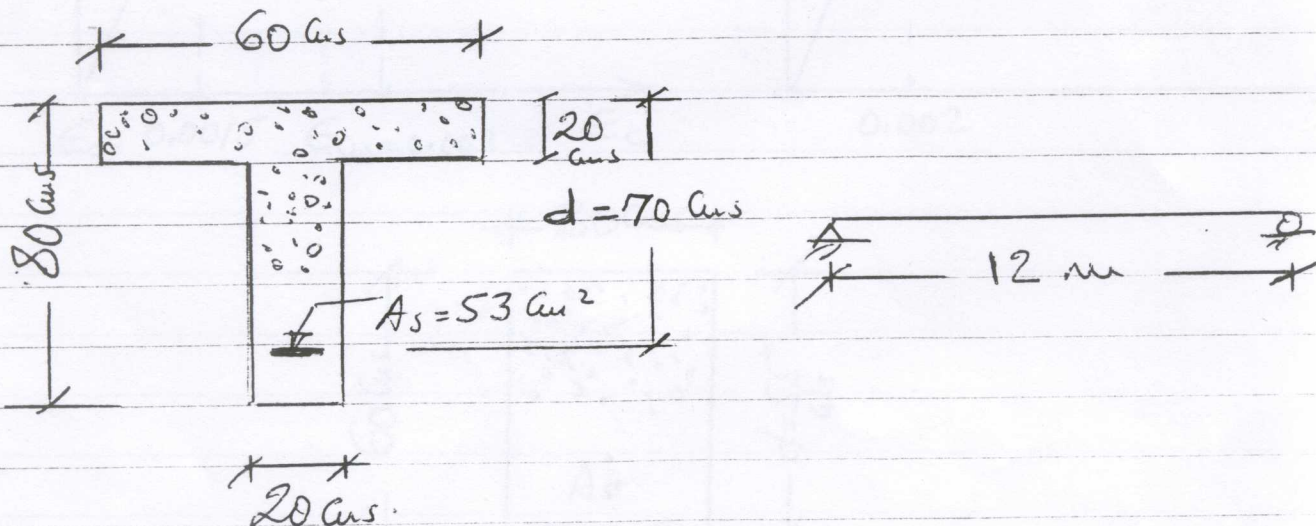 60 cms
20
cms
80 cms
d = 70 cms
As = 53 cm²
12 m
20 cms.
0.002